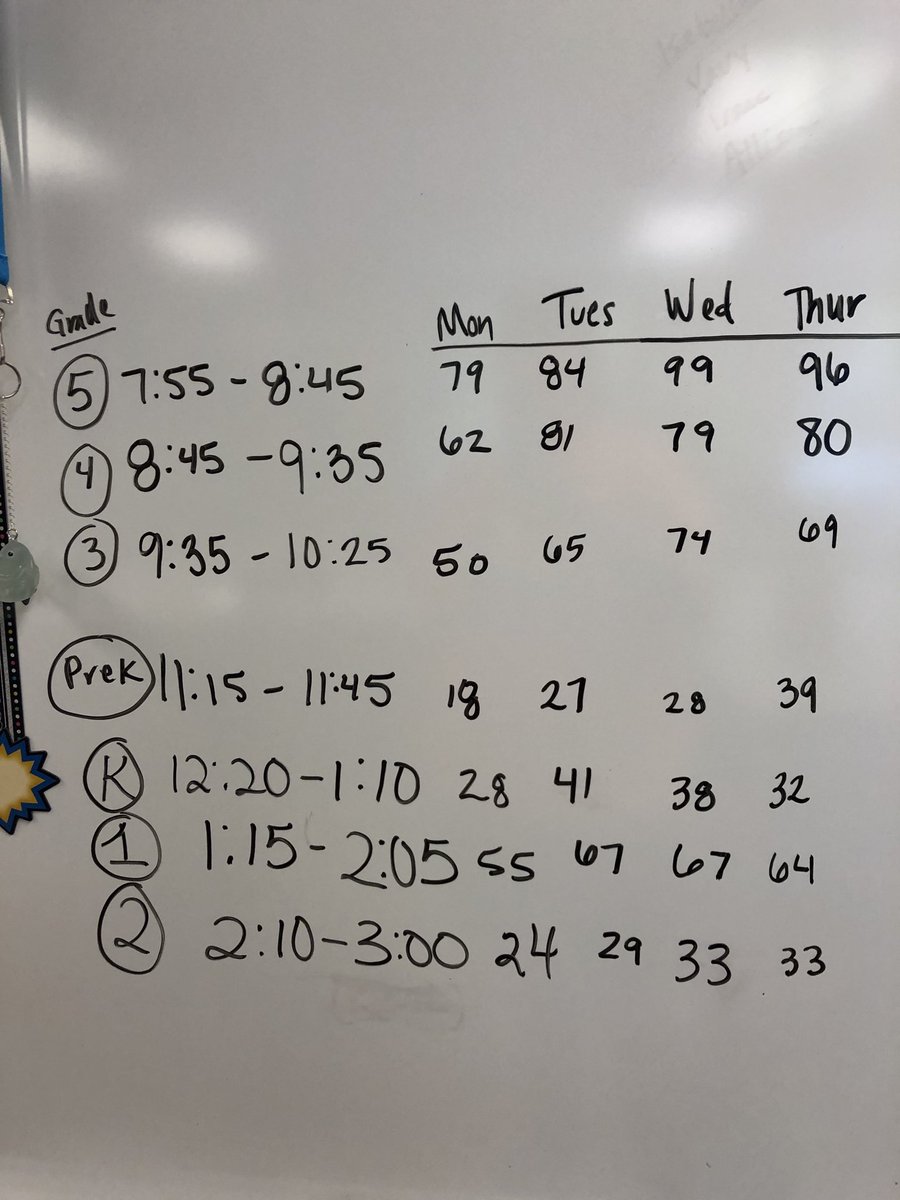 Grade Mon Tues Wed Thur
5 7:55 - 8:45 79 84 99 96
4 8:45 - 9:35 62 81 79 80
3 9:35 - 10:25 50 65 74 69
PreK 11:15 - 11:45 18 27 28 39
K 12:20 - 1:10 28 41 38 32
1 1:15 - 2:05 55 67 67 64
2 2:10 - 3:00 24 29 33 33